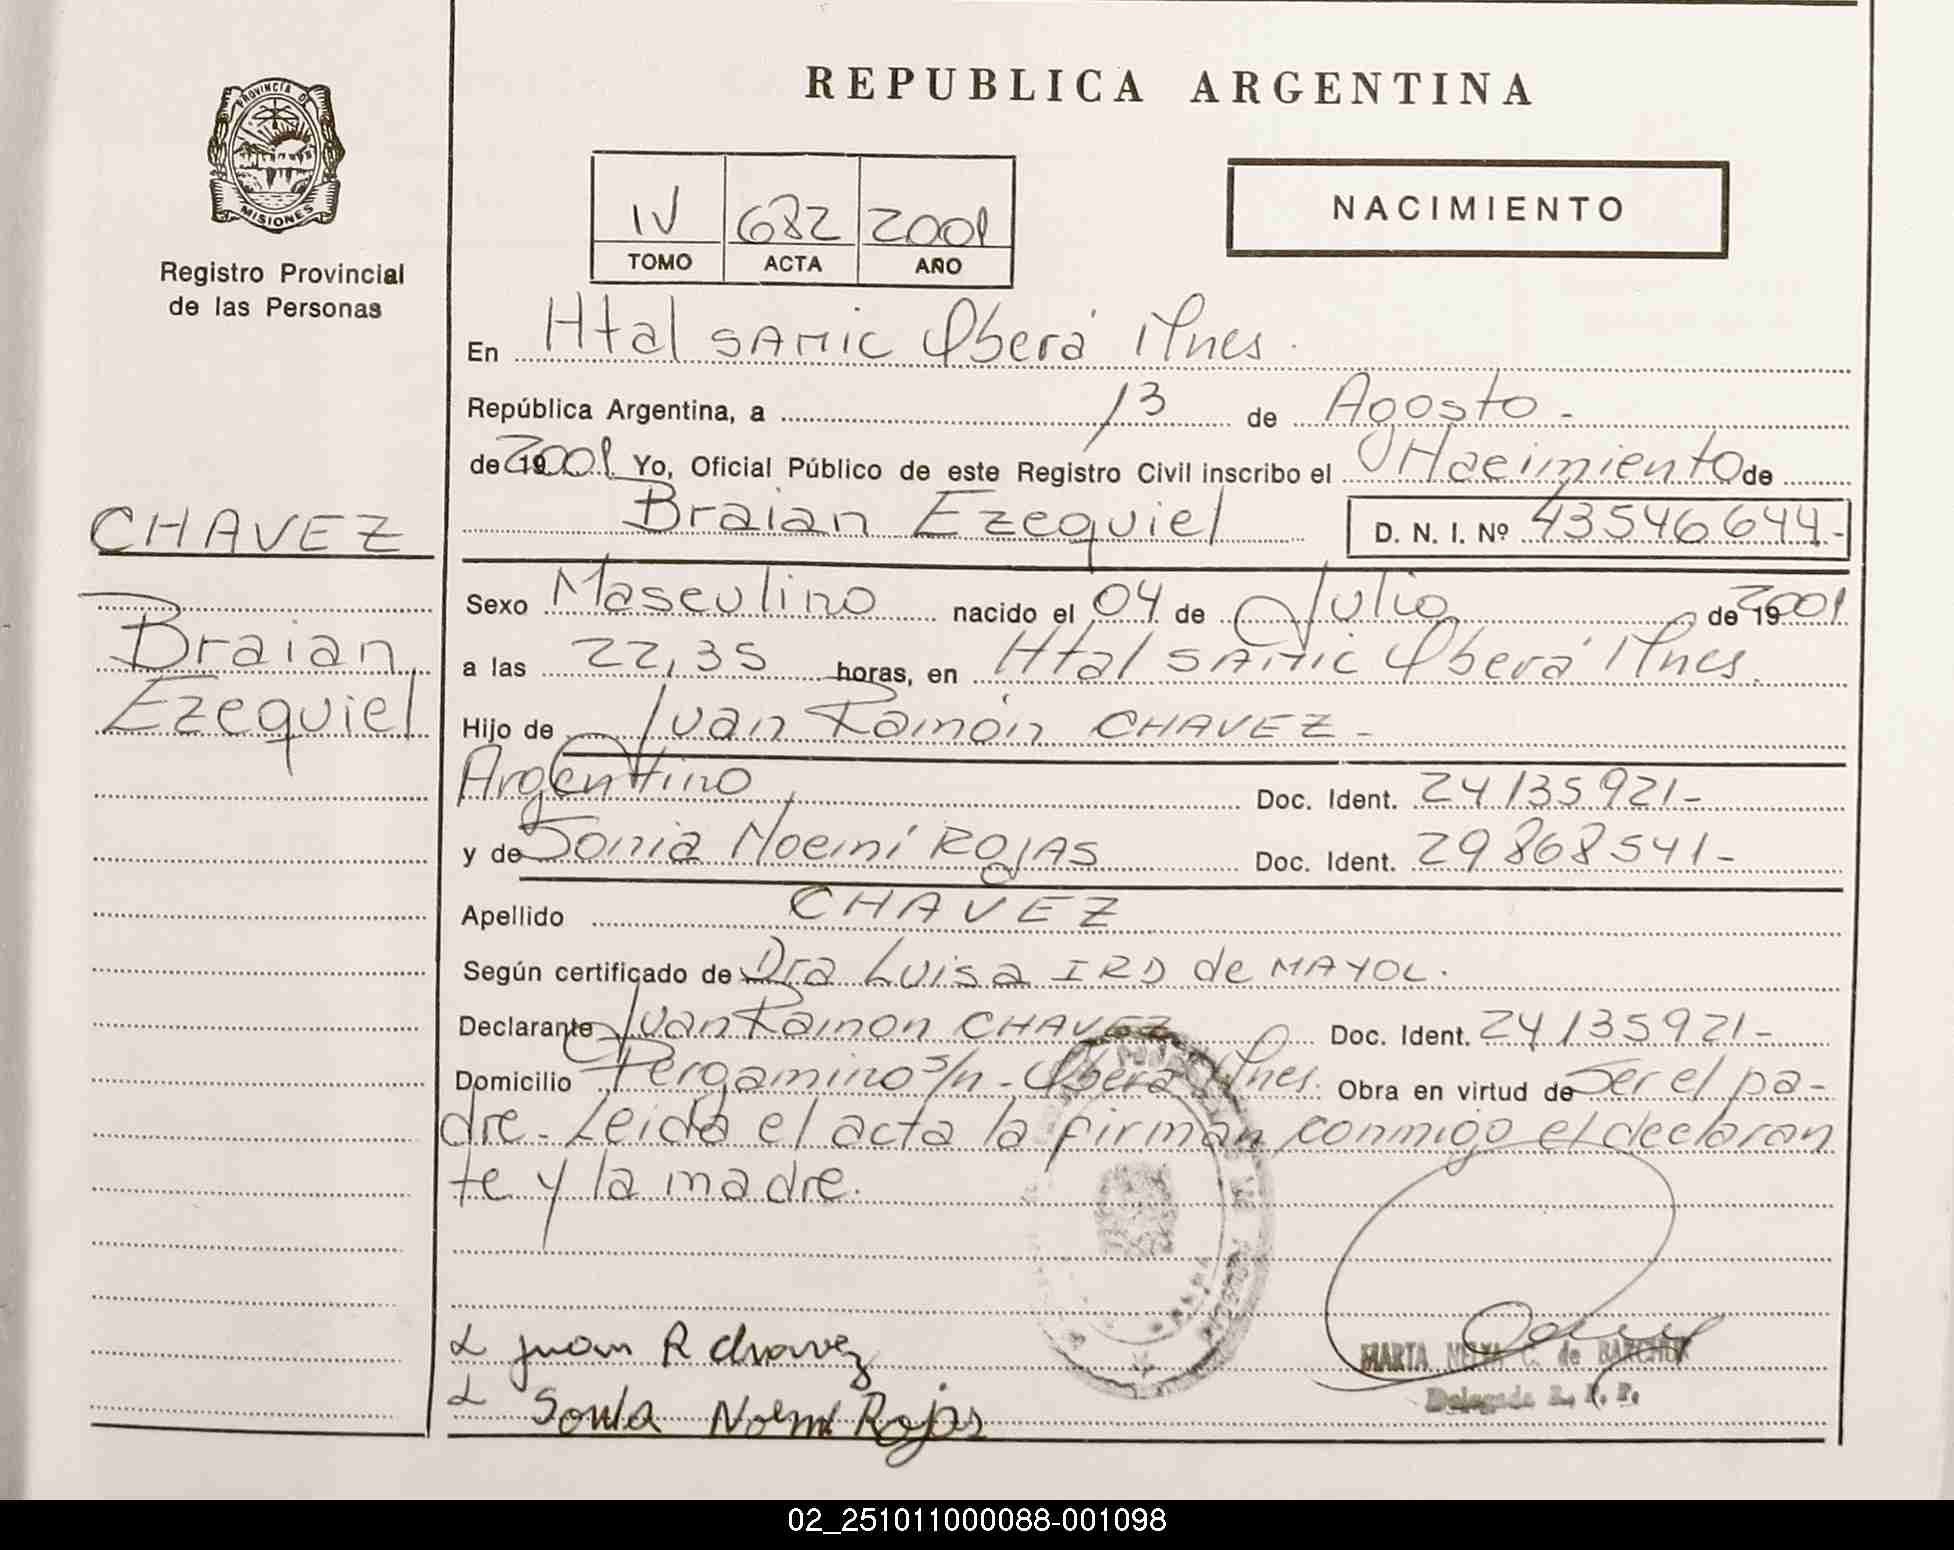 REPUBLICA ARGENTINA
PROVINCIA DE
MISIONES
Registro Provincial
de las Personas
IV 682 2001
TOMO ACTA AÑO
NACIMIENTO
En Htal SAMIC Oberá Mnes.
República Argentina, a 13 de Agosto -
de 19 2001 Yo, Oficial Público de este Registro Civil inscribo el Nacimiento de
Braian Ezequiel D. N. I. Nº 43546644.-
CHAVEZ
Braian
Ezequiel
Sexo Masculino nacido el 04 de Julio de 19 2001
a las 22,35 horas, en Htal SAMIC Oberá Mnes.
Hijo de Juan Ramón CHAVEZ -
Argentino Doc. Ident. 24135921-
y de Sonia Noemí ROJAS Doc. Ident. 29868541-
Apellido CHAVEZ
Según certificado de Dra Luisa IRD de MAYOL.
Declarante Juan Ramon CHAVEZ Doc. Ident. 24135921-
Domicilio Pergamino s/n - Oberá Mnes. Obra en virtud de Ser el pa-
dre. Leida el acta la firman conmigo el declaran
te y la madre.
Juan R Chavez
Sonia Noemi Rojas
MARTA C. de
Delegada R. P. P.
02_251011000088-001098